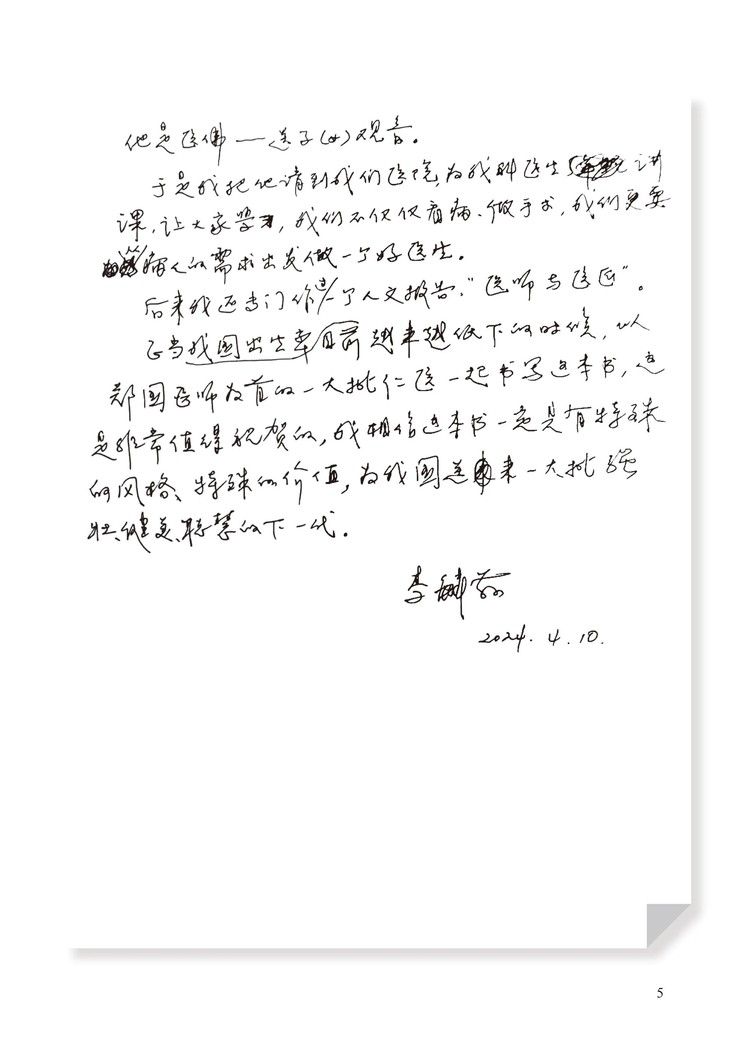 他是医佛——送子(女)观音。
于是我把他请到我们医院,为我科医生讲
课,让大家学习,我们不仅仅看病、做手术,我们更要
病人的需求出发做一个好医生。
后来我还专门作过一个人文报告,“医师与医匠”。
正当我国出生率目前越来越低下的时候,以
郑国医师为首的一大批仁医一起书写这本书,这
是非常值得祝贺的,我相信这本书一定是有特殊
的风格、特殊的价值,为我国送来一大批强
壮、健美、聪慧的下一代。
李
2024.4.10.
5